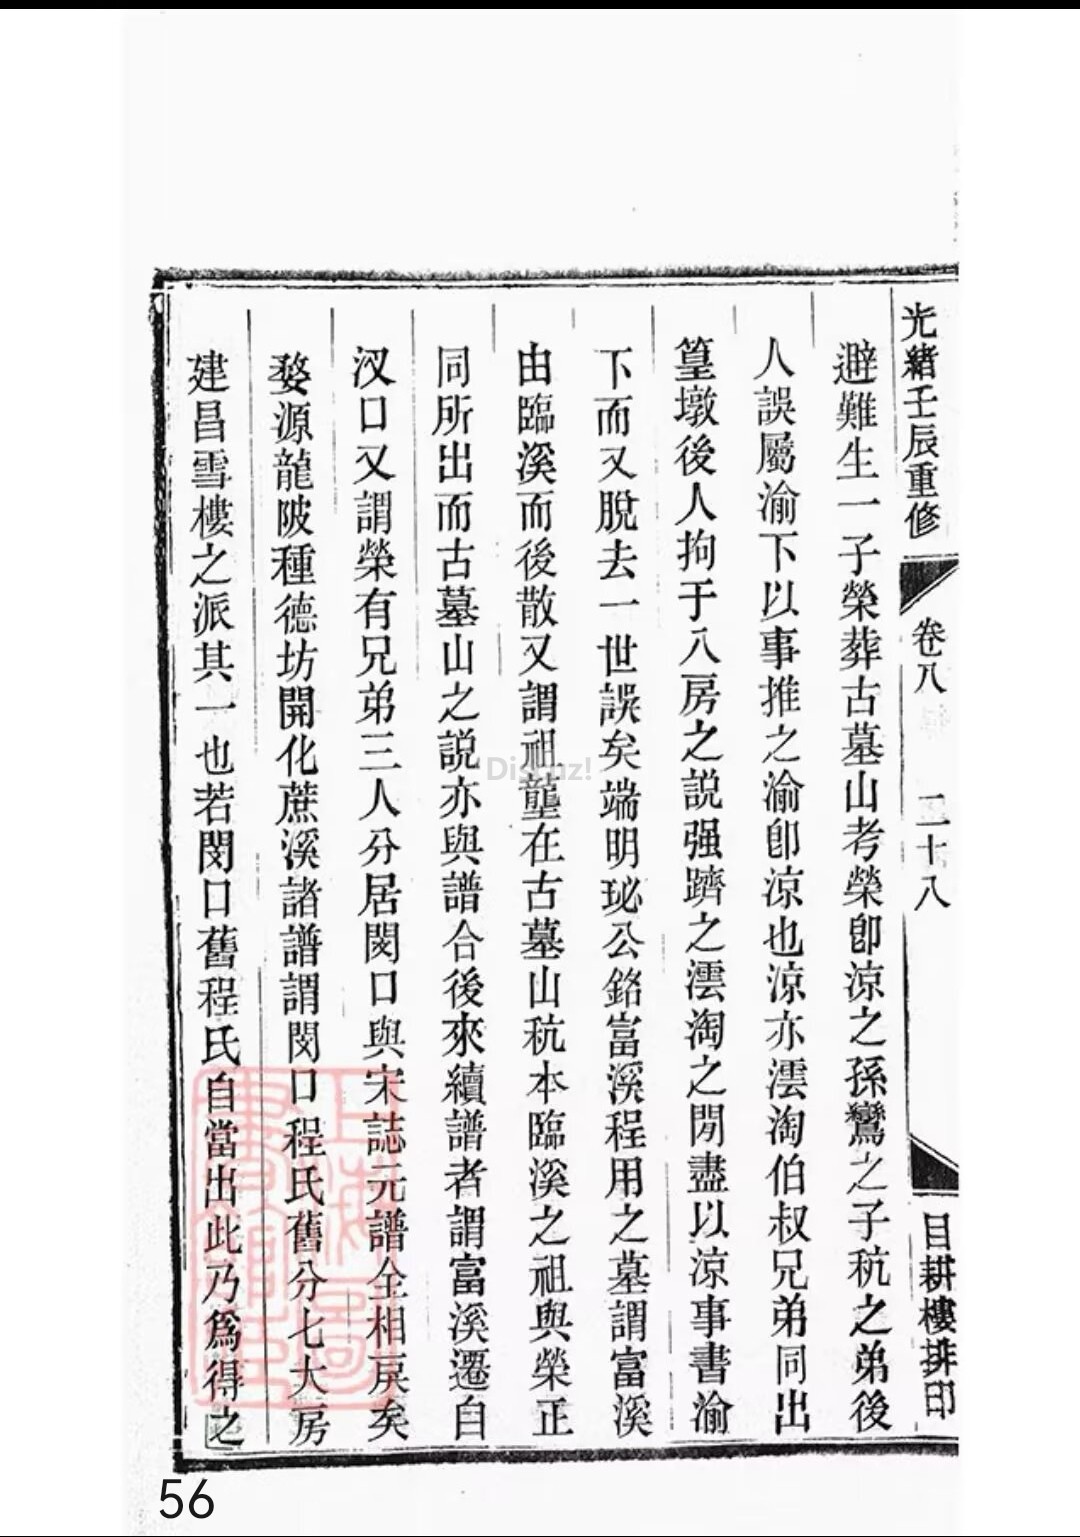 光緒壬辰重修
卷八
二十八
目耕樓排印
避難生一子榮葬古墓山考榮卽涼之孫鸞之子秔之弟後
人誤屬渝下以事推之渝卽涼也涼亦澐淘伯叔兄弟同出
篁墩後人拘于八房之説强躋之澐淘之閒盡以涼事書渝
下而又脫去一世誤矣端明珌公銘富溪程用之墓謂富溪
由臨溪而後散又謂祖壟在古墓山秔本臨溪之祖與榮正
同所出而古墓山之説亦與譜合後來續譜者謂富溪遷自
汊口又謂榮有兄弟三人分居閔口與宋誌元譜全相戾矣
婺源龍陂種德坊開化蔗溪諸譜謂閔口程氏舊分七大房
建昌雪樓之派其一也若閔口舊程氏自當出此乃爲得之
上海圖書館藏
Discuz!
56